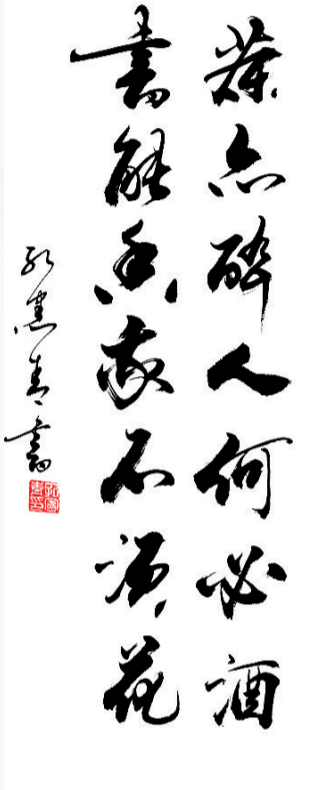 茶亦醉人何必酒
書能香我不須花
孔憲青書